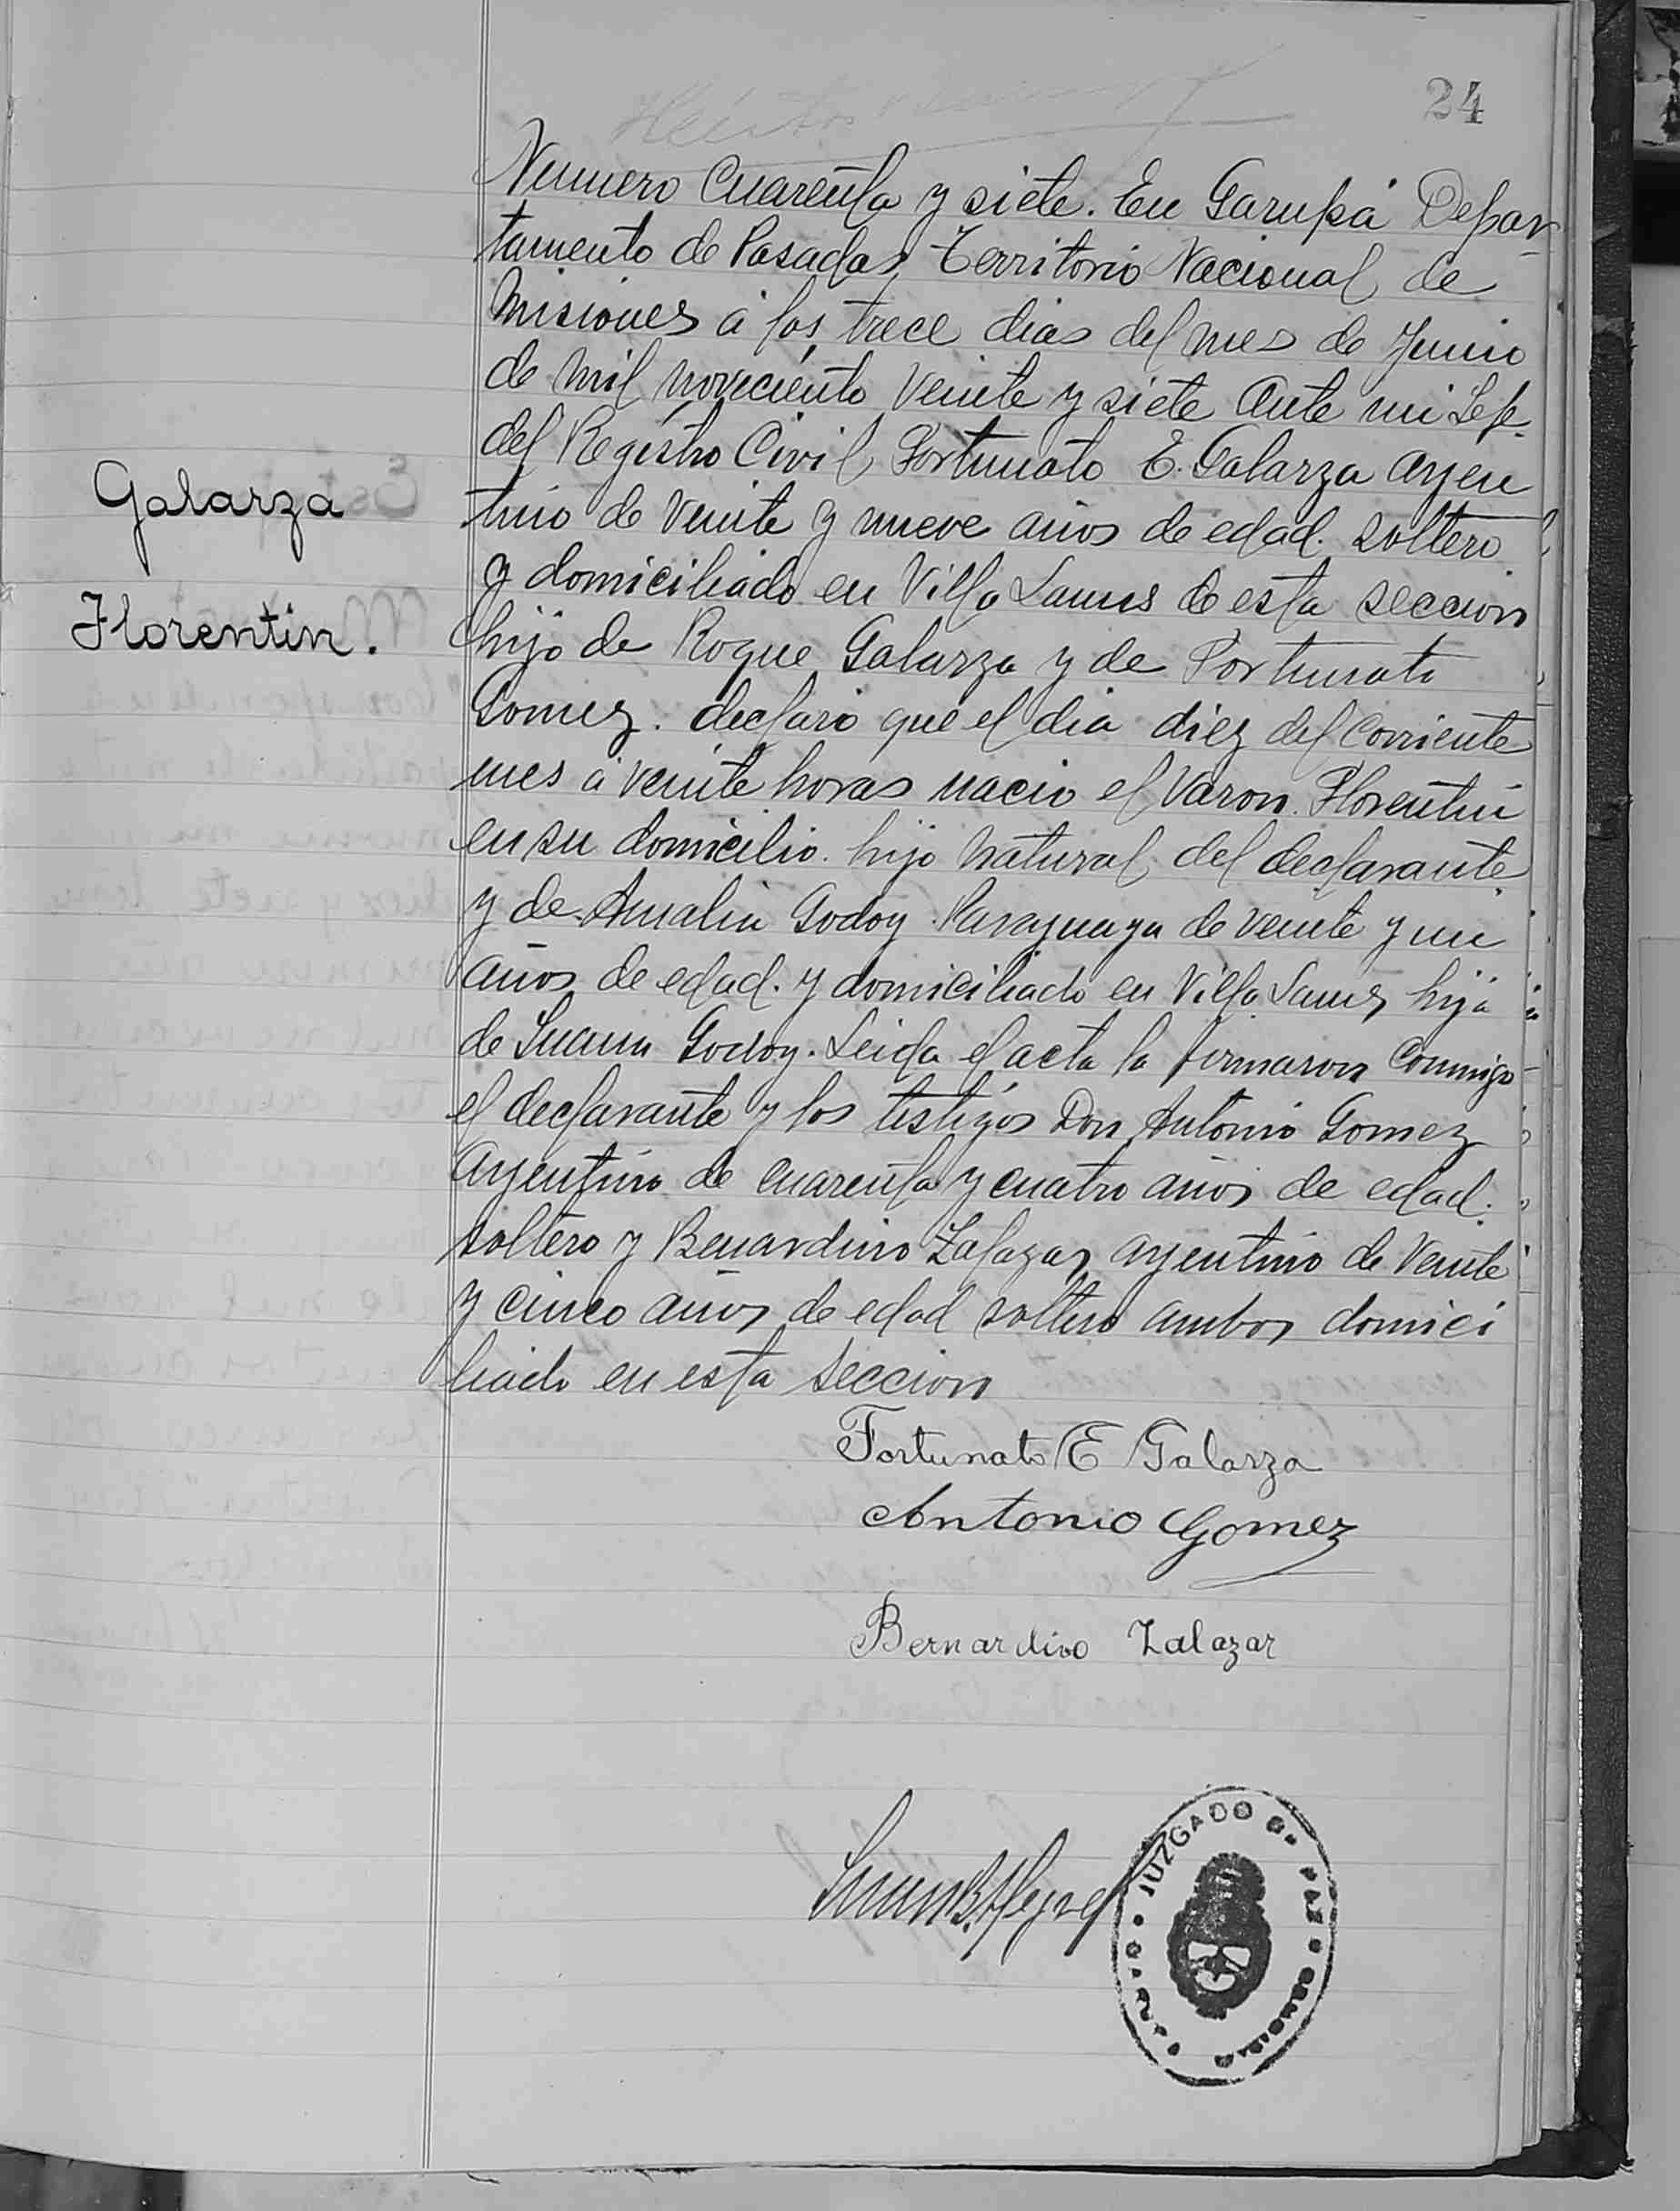 24
Numero Cuarenta y siete. En Garupá Depar
tamento de Posadas, Territorio Nacional de
Misiones á los trece dias del mes de Junio
de mil noveciento Veinte y siete Ante mi Jefe
del Registro Civil, Fortunato E. Galarza Argen
tino de Veinte y nueve años de edad. soltero
y domiciliado en Villa Lanus de esta seccion
hijo de Roque Galarza y de Fortunata
Gomez. declaró que el dia diez del corriente
mes á veinte horas nacio el Varon Florentin
en su domicilio. hijo natural del declarante
y de Amalia Godoy Paraguaya de veinte y un
años de edad. y domiciliado en Villa Lanus, hija
de Juana Godoy. Leida el acta la firmaron conmigo
el declarante y los testigos Don Antonio Gomez
Argentino de cuarenta y cuatro años de edad.
soltero y Benardino Zalazar argentino de Veinte
y cinco años de edad soltero ambos domici
liado en esta seccion
Galarza
Florentin.
Fortunato E Galarza
Antonio Gomez
Bernardino Zalazar
JUZGADO DE PAZ